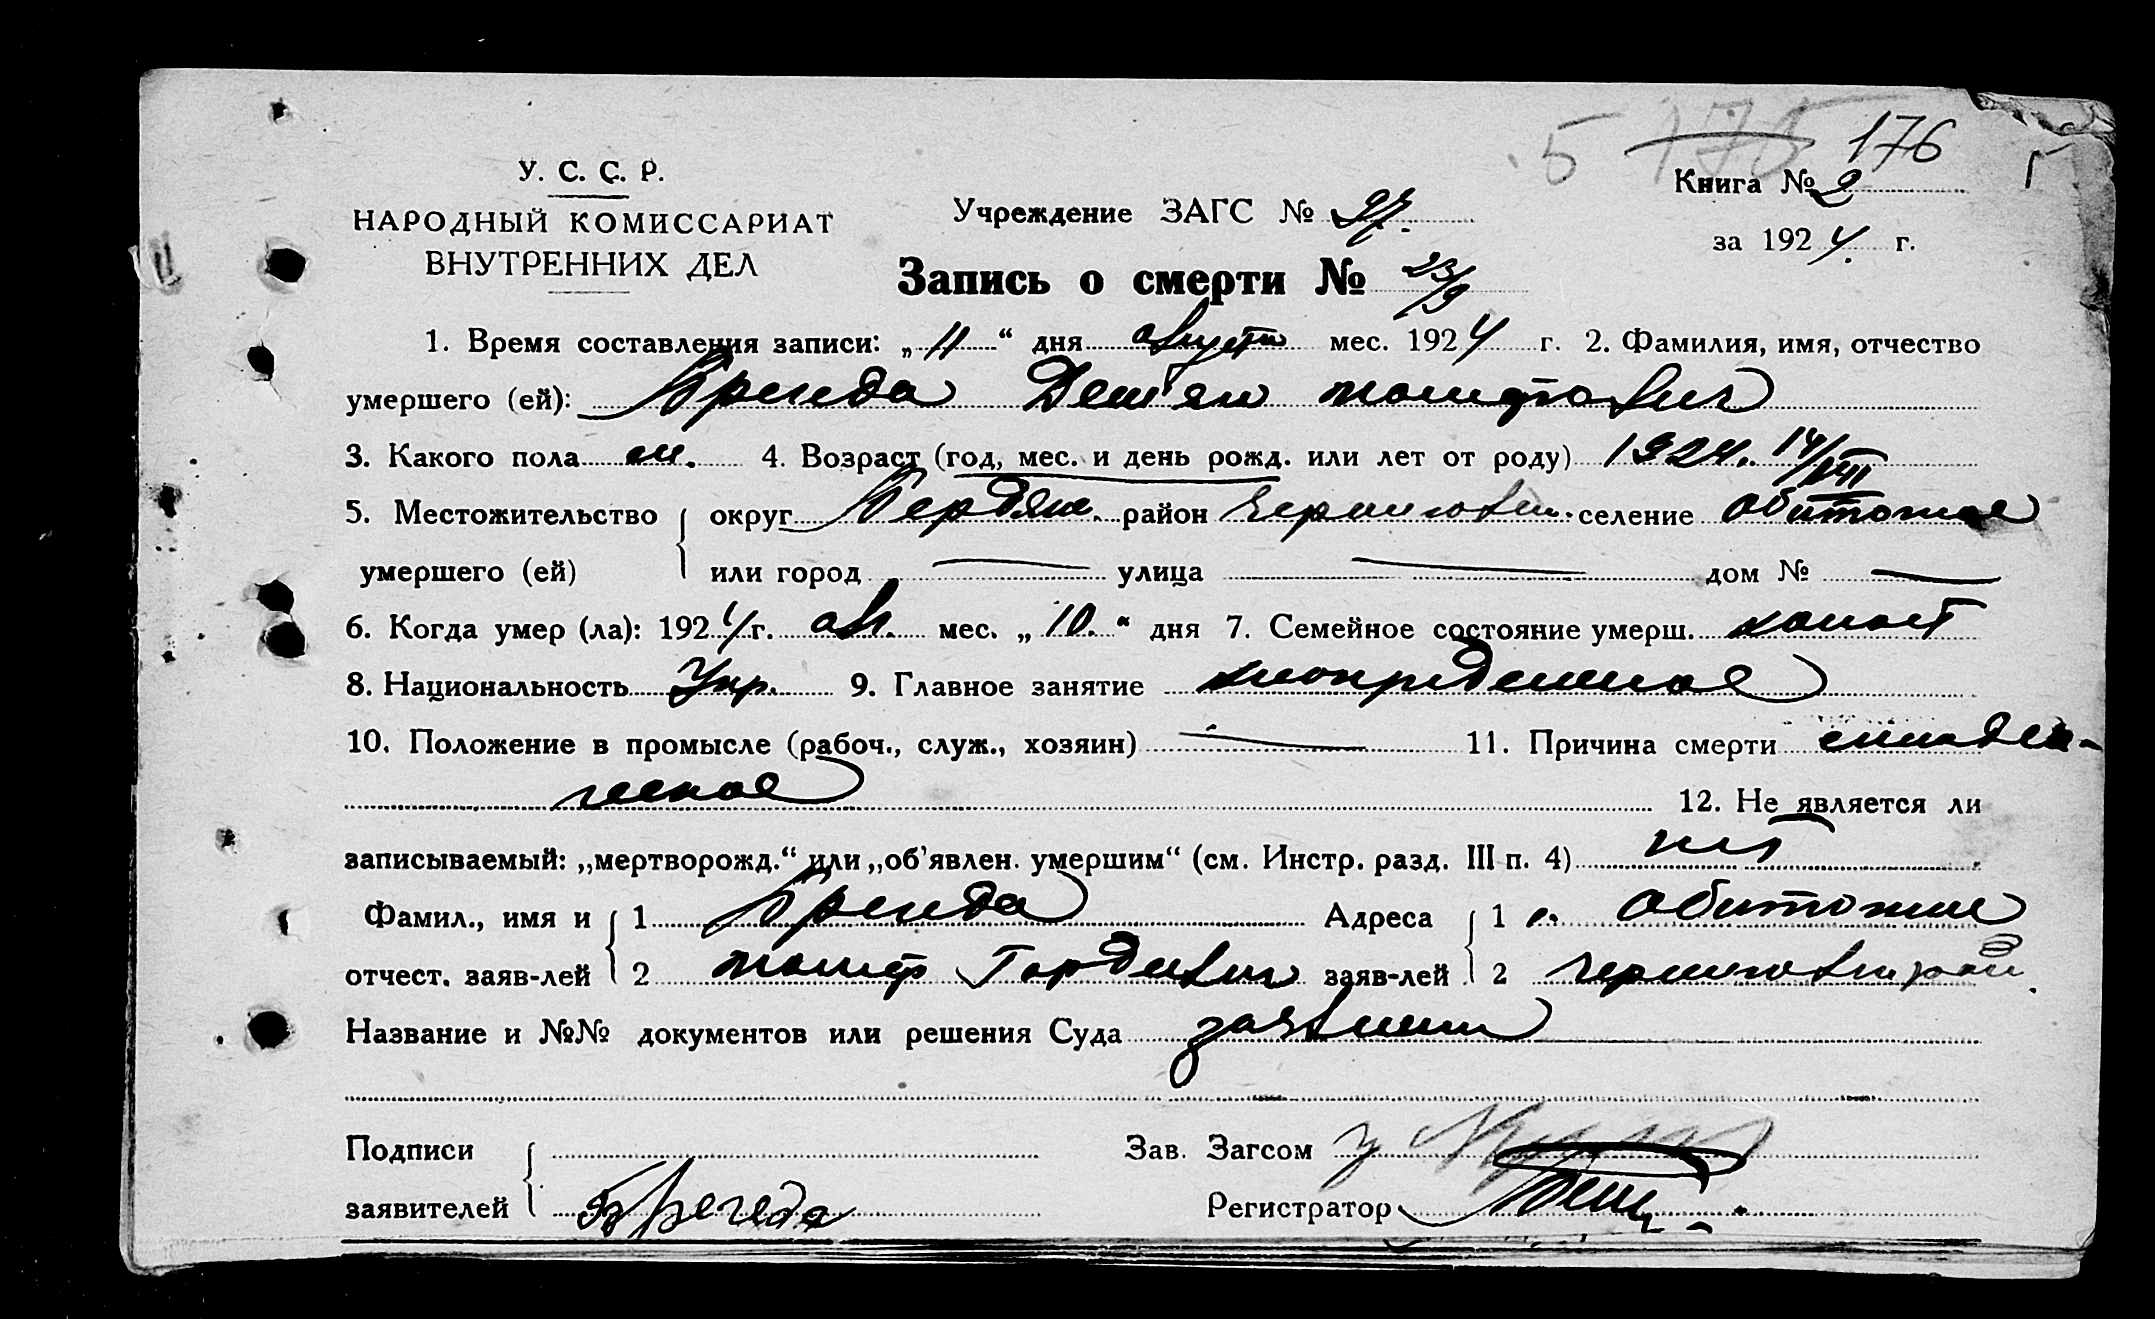 5 175 176
У. С. С. Р.
Книга № 2
НАРОДНЫЙ КОМИССАРИАТ
Учреждение ЗАГС №
за 1924 г.
ВНУТРЕННИХ ДЕЛ
Запись о смерти № 23/9
1. Время составления записи: „11“ дня августа мес. 1924 г. 2. Фамилия, имя, отчество
умершего (ей): Брегеда Демьян
3. Какого пола м. 4. Возраст (год, мес. и день рожд. или лет от роду) 1924. 14/VII
5. Местожительство округ Бердян. район Черниговск. селение Обиточное
умершего (ей) или город — улица — дом № —
6. Когда умер (ла): 1924 г. авг. мес. „10.“ дня 7. Семейное состояние умерш. холост
8. Национальность Укр. 9. Главное занятие неопределенное
10. Положение в промысле (рабоч., служ., хозяин) — 11. Причина смерти эпидем-
ическое 12. Не является ли
записываемый: „мертворожд.“ или „об'явлен. умершим“ (см. Инстр. разд. III п. 4) нет
Фамил., имя и 1 Брегеда Адреса 1 с. Обиточное
отчест. заяв-лей 2 Гордеевич заяв-лей 2 Черниговск район
Название и №№ документов или решения Суда заявление
Подписи Зав. Загсом
заявителей Брегеда Регистратор